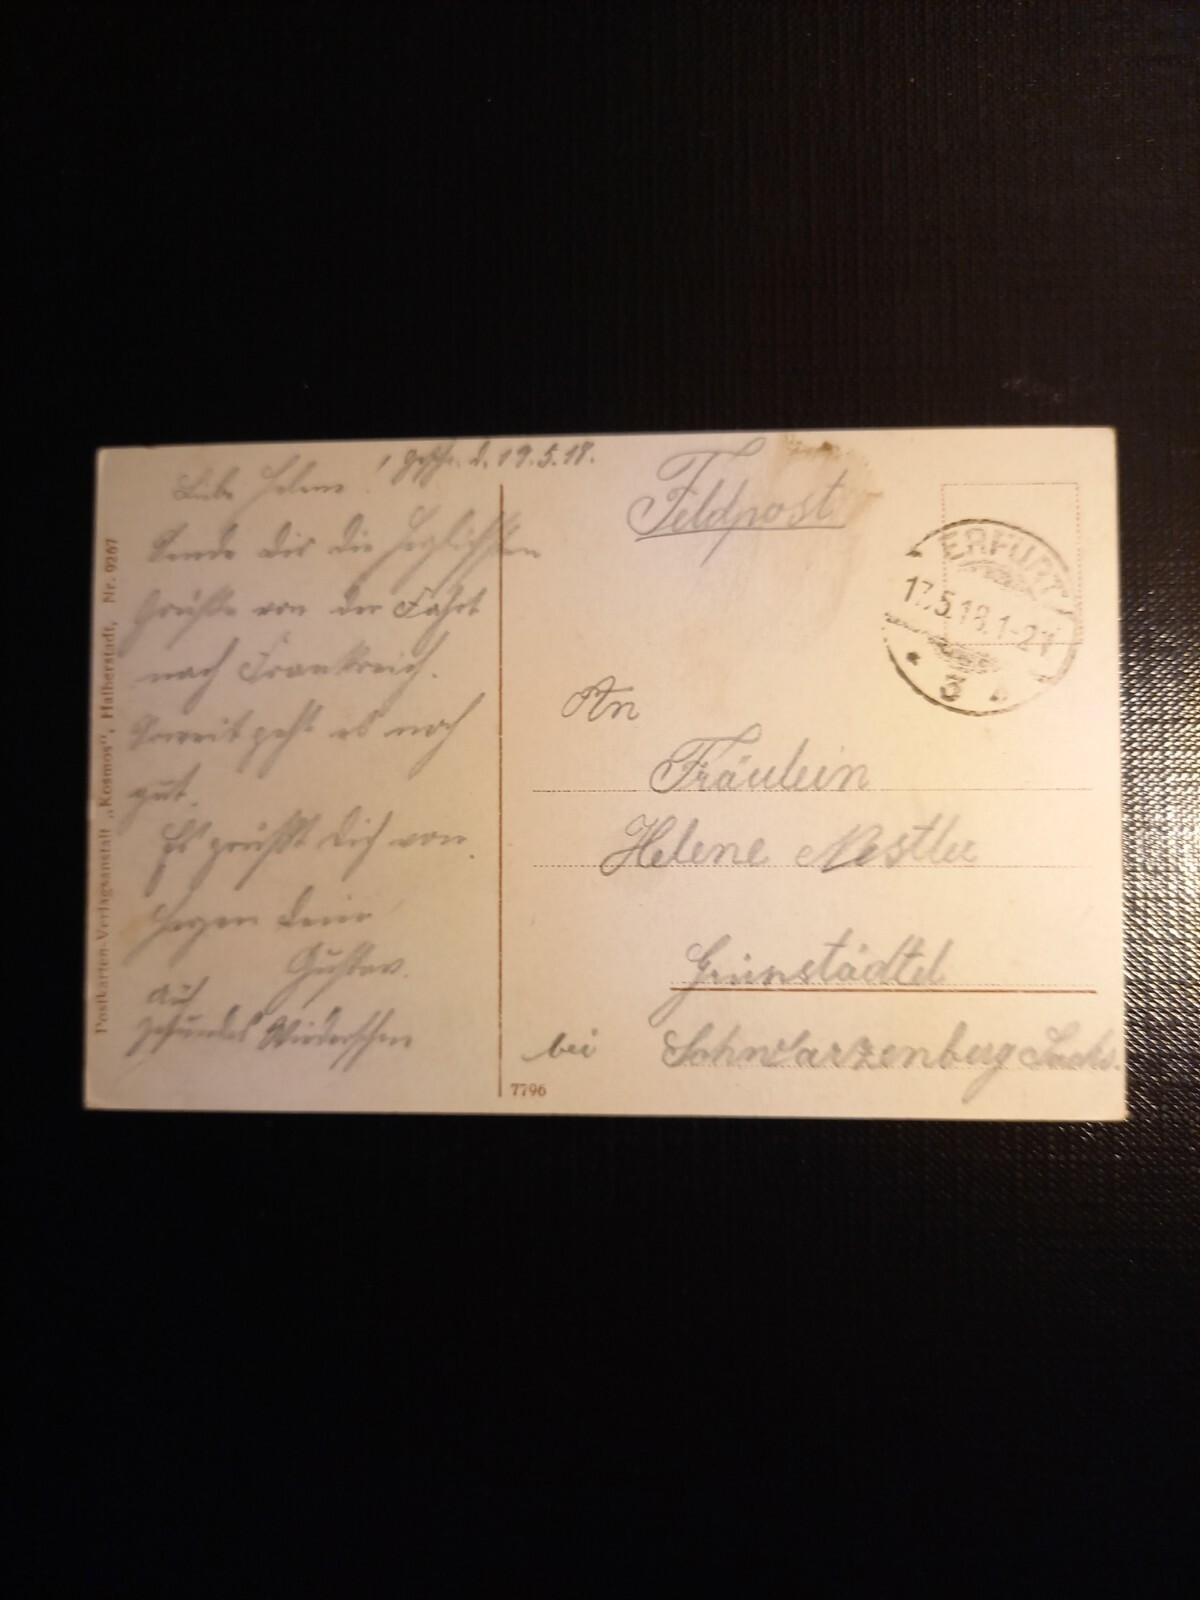 geschr. d. 19.5.18.
Liebe Helene!
Sende dir die herzlichsten
Grüße von der Fahrt
nach Frankreich.
Soweit geht es noch
gut.
Es grüßt dich von
Herzen dein
Gustav.
Auf
gesundes Wiedersehen
Postkarten-Verlagsanstalt „Kosmos", Halberstadt, Nr. 9267
7796
Feldpost
ERFURT
17.5.18.1-2N
* 3
An
Fräulein
Helene Nestler
Grünstädtel
bei Schwarzenberg Sachs.